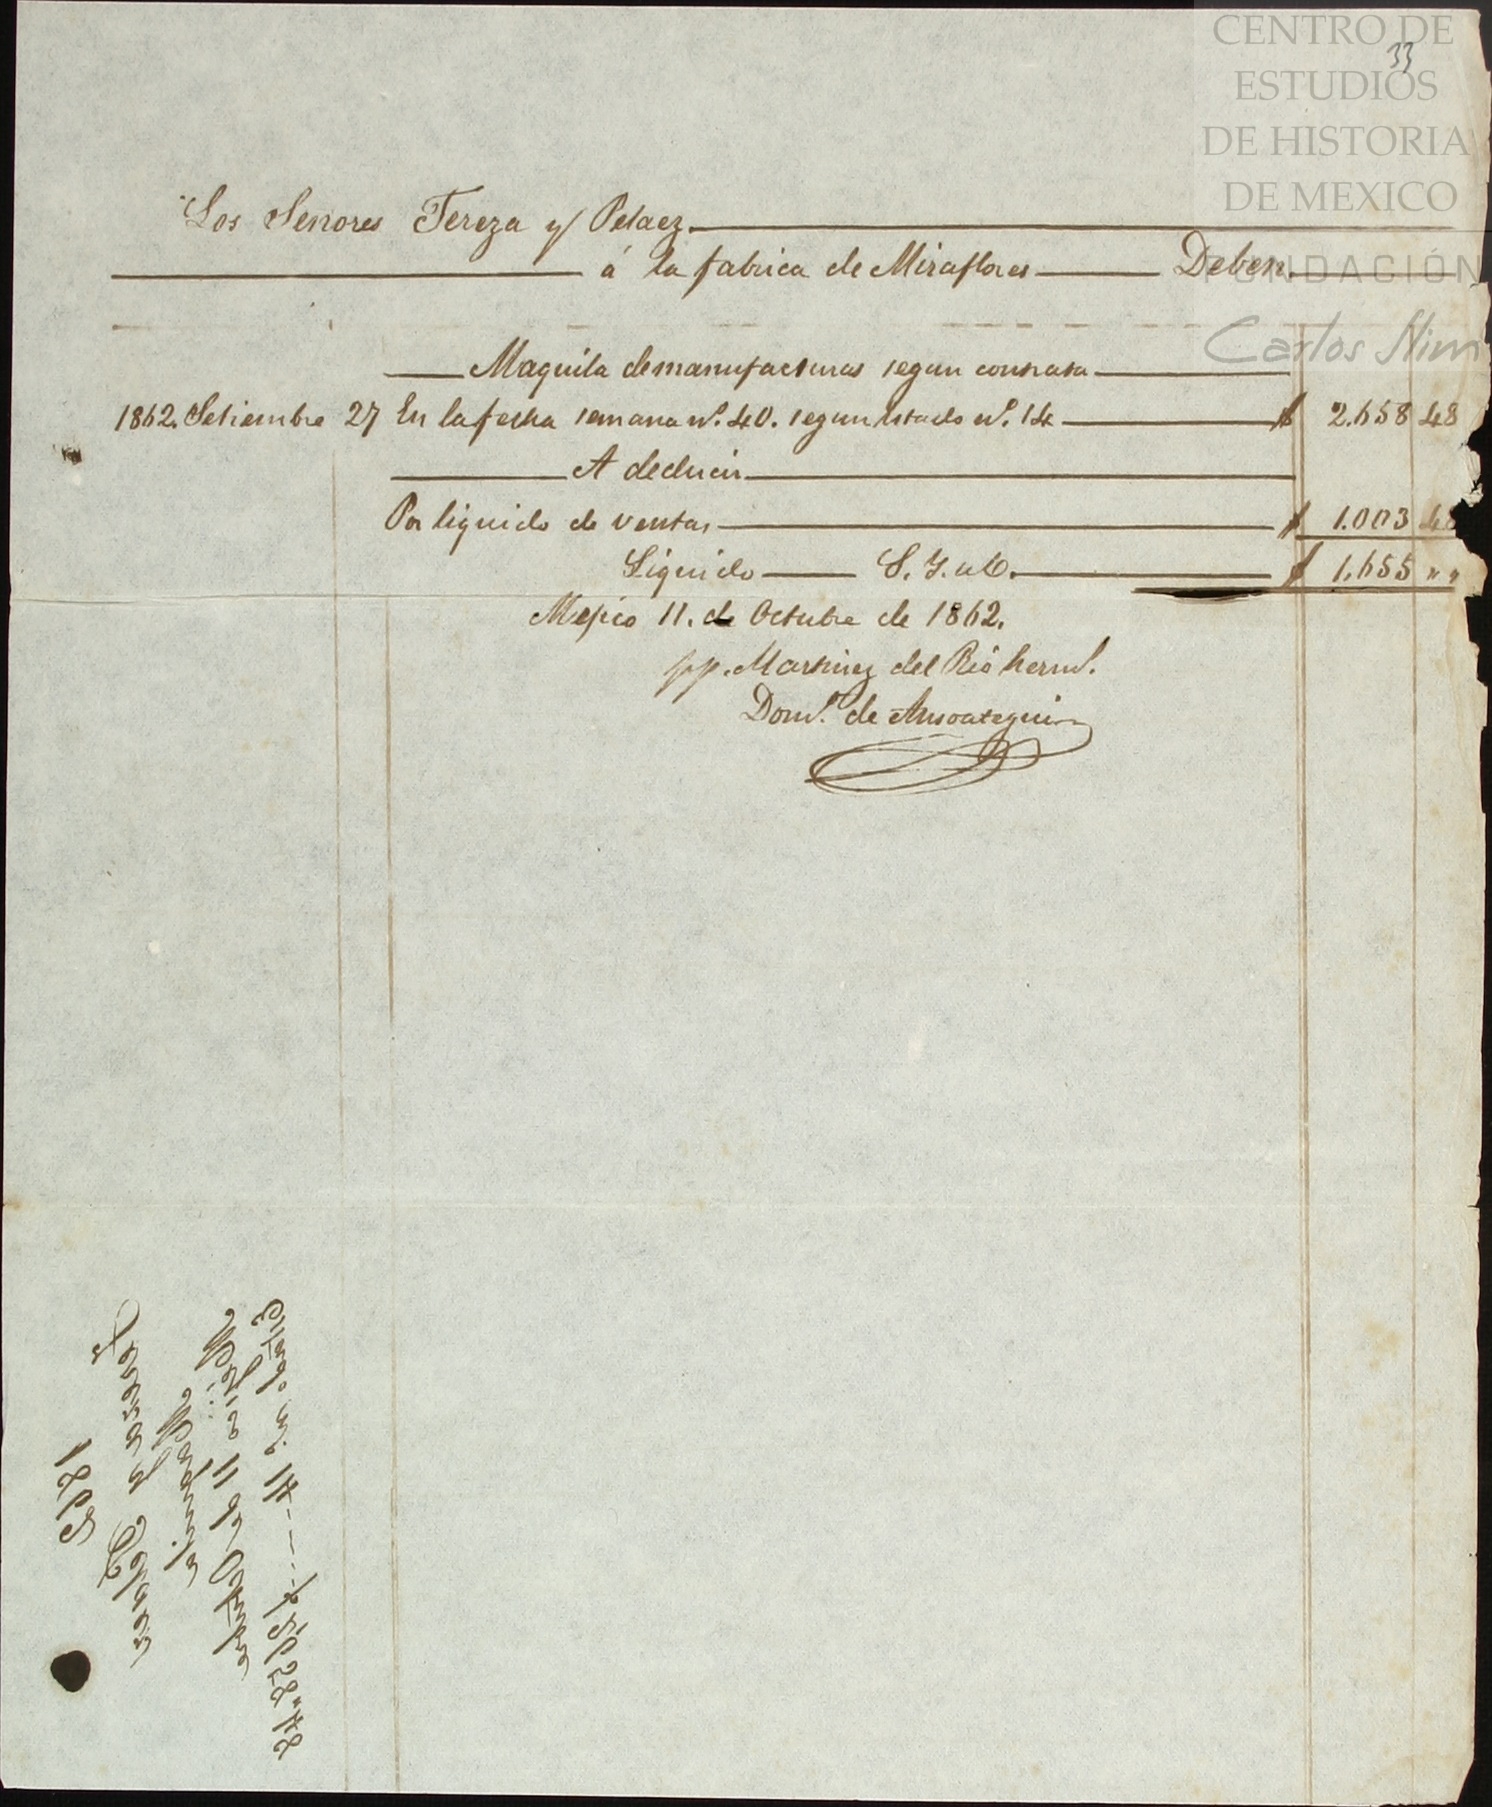 CENTRO DE
ESTUDIOS
DE HISTORIA
DE MEXICO
FUNDACIÓN
Carlos Slim
33
Los Señores Tereza y Pelaez
á la fabrica de Miraflores Deben
Maquila de manufacturas segun contrata
1862. Setiembre 27 En la fecha semana nº. 40. segun Estado nº. 14 $ 2.658 48
A deducir
Por liquido de ventas $ 1.003 48
Liquido S. Y. u O. $ 1.655 " "
Mejico 11. de Octubre de 1862.
pp. Martinez del Rio hermº.
Domº. de Ansoategui
Estado nº. 14 --- $ 2,658"48
Mejico 11 de Octubre
Maquila
Tereza y Pelaez
1862